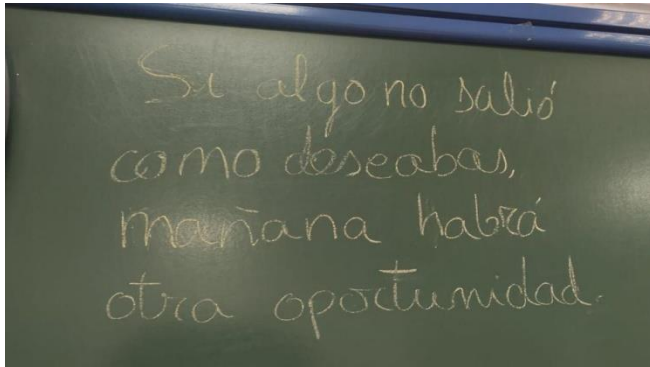 Si algo no salió
como deseabas,
mañana habrá
otra oportunidad.